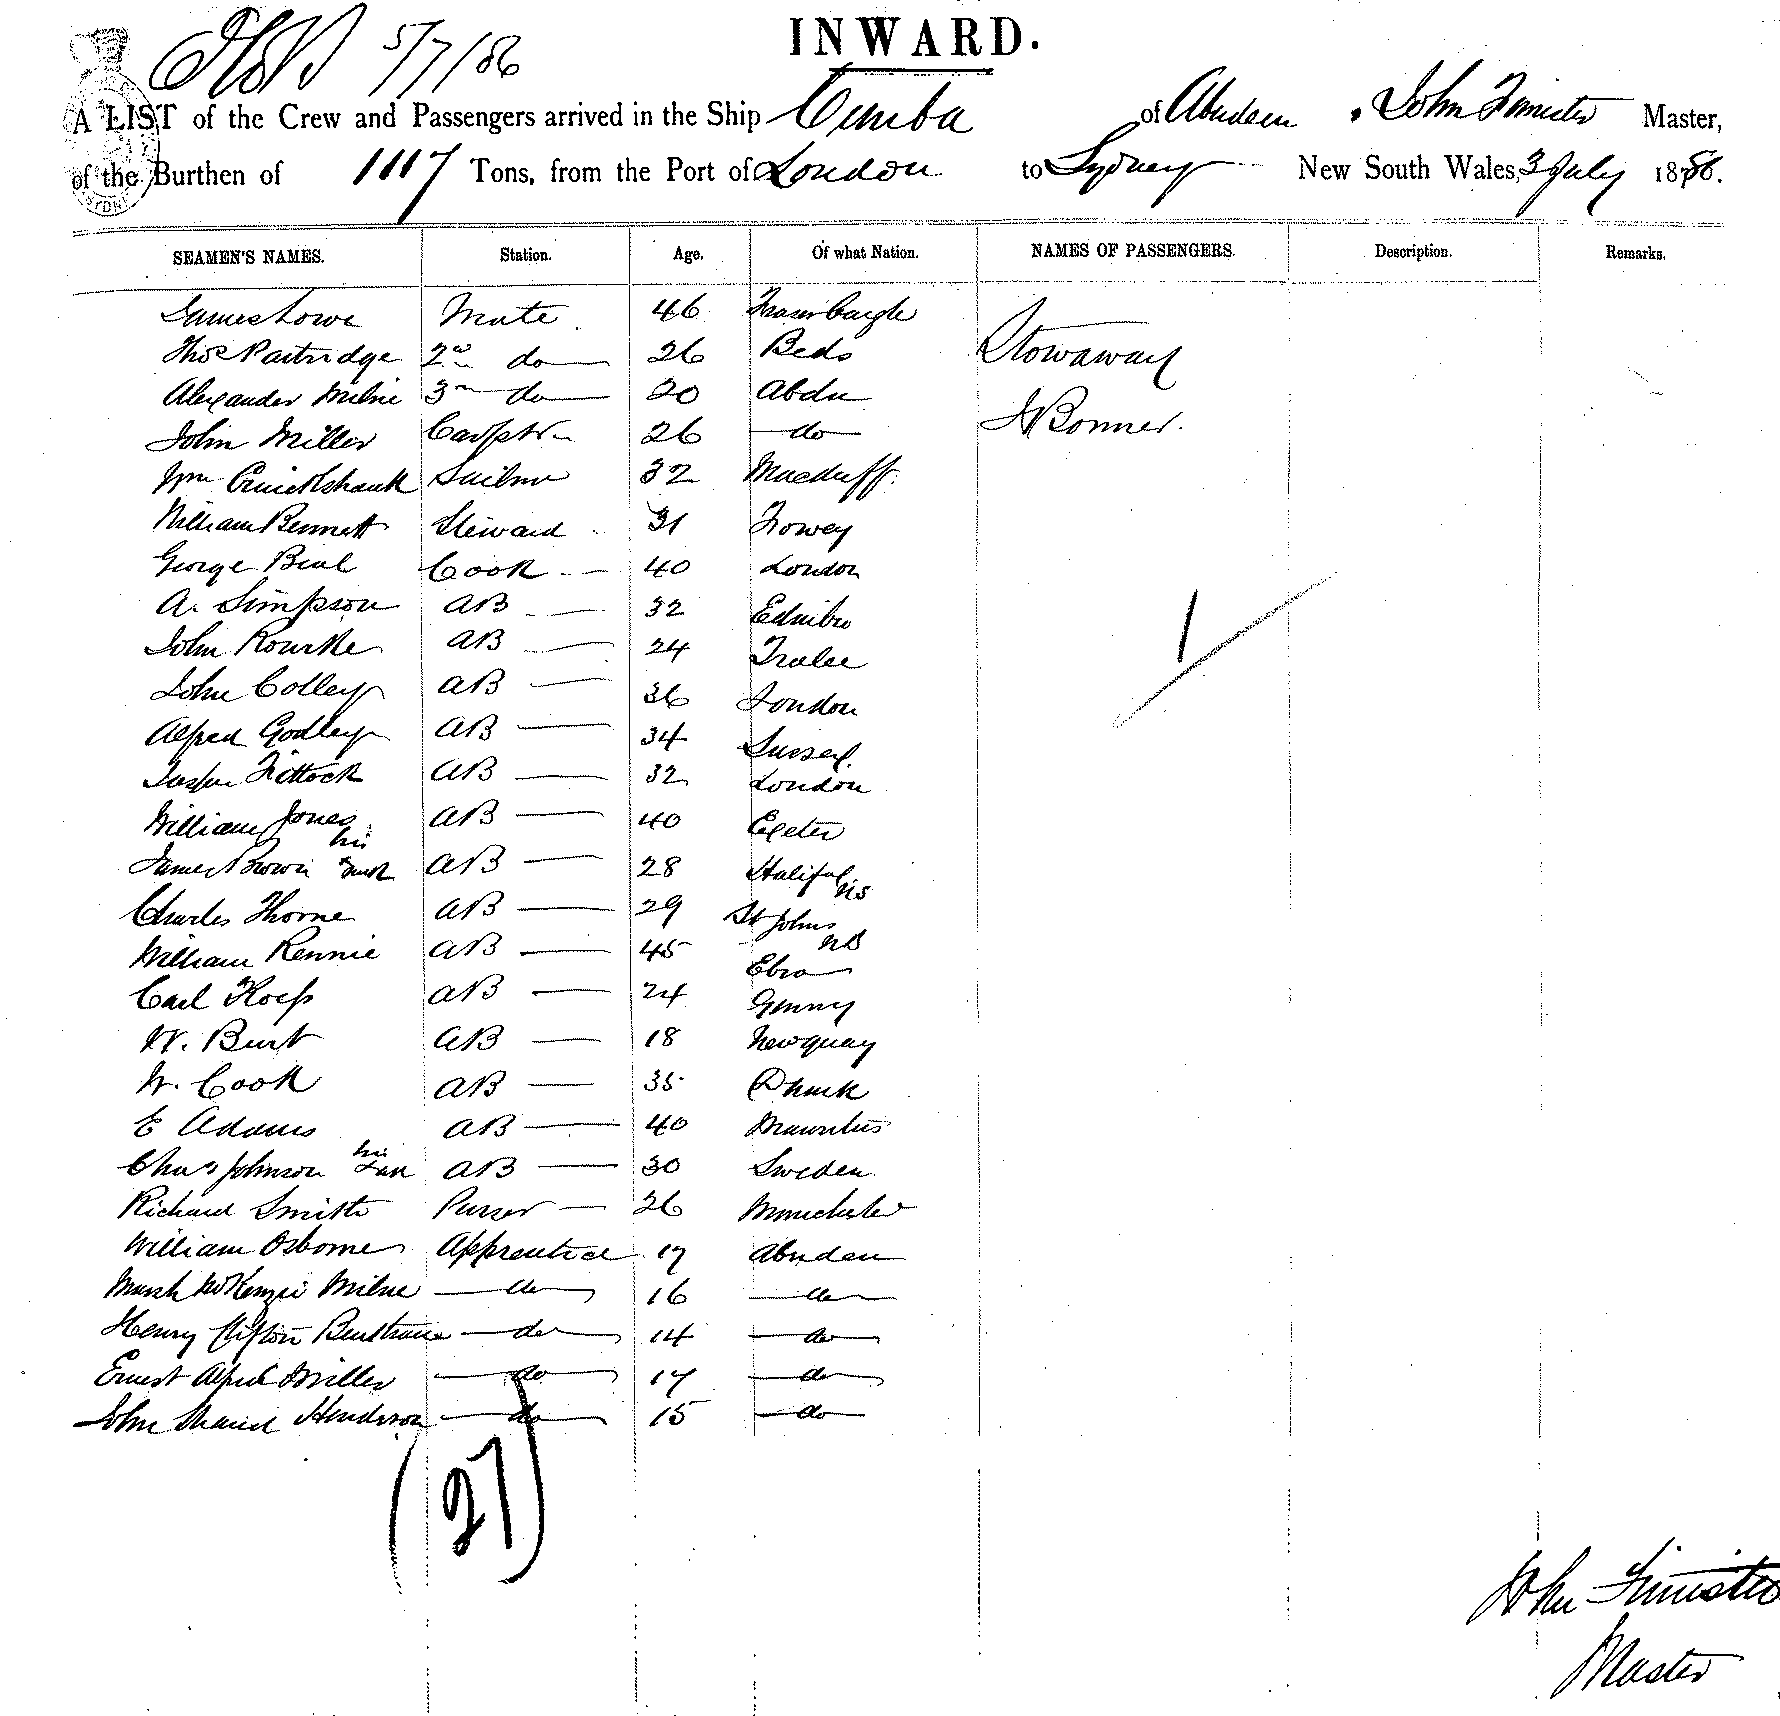 5/7/86
INWARD.
A LIST of the Crew and Passengers arrived in the Ship Cimba of Aberdeen, John Fimister Master,
of the Burthen of 1117 Tons, from the Port of London to Sydney New South Wales, 3 July 1886.
SEAMEN'S NAMES. Station. Age. Of what Nation. NAMES OF PASSENGERS. Description. Remarks.
James Lowe Mate 46 Fraserburgh
Thos Partridge 2nd do 26 Beds Stowaway
Alexander Milne 3rd do 20 Abdn
John Miller Carptr 26 do Bonner.
Wm Cruickshank Sailmr 32 Macduff.
William Bennett Steward 31 Fowey
George Beal Cook 40 London
A. Simpson AB 32 Edinbro
John Rourke AB 24 Tralee
John Colley AB 36 London
Alfred Godley AB 34 Sussex.
Fittock AB 32 London
William Jones AB 40 Exeter
James Brown his mark AB 28 Halifax NS
Charles Thorne AB 29 St Johns NB
William Rennie AB 45
Carl AB 24 Gmny
W. Burt AB 18 Newquay
W. Cook AB 35
E Adams AB 40 Mauritius
Chas Johnson his AB 30 Sweden
Richard Smith Purser 26 Manchester
William Osborne Apprentice 17 Aberdeen
McKenzie Milne do 16 do
Henry Clifton do 14 do
Ernest Alfred Miller do 17 do
John Henderson do 15 do
(27)
John Fimister
Master